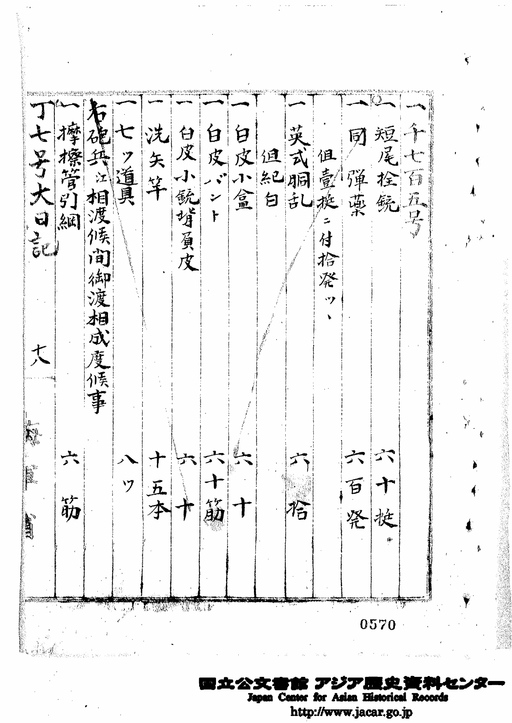 一 千七百五号
一 短尾栓銃 六十挺
一 同弾薬 六百発
但壹挺ニ付拾発ツヽ
一 英式胴乱 六拾
但紀白
一 白皮小盒 六十
一 白皮バント 六十筋
一 白皮小銃 負皮 六十
一 洗矢竿 十五本
一 七ツ道具 八ツ
右砲兵江相渡候間御渡相成度候事
一 摩擦管引綱 六筋
丁七号大日記 十八
海軍省
0570
国立公文書館 アジア歴史資料センター
Japan Center for Asian Historical Records
http://www.jacar.go.jp